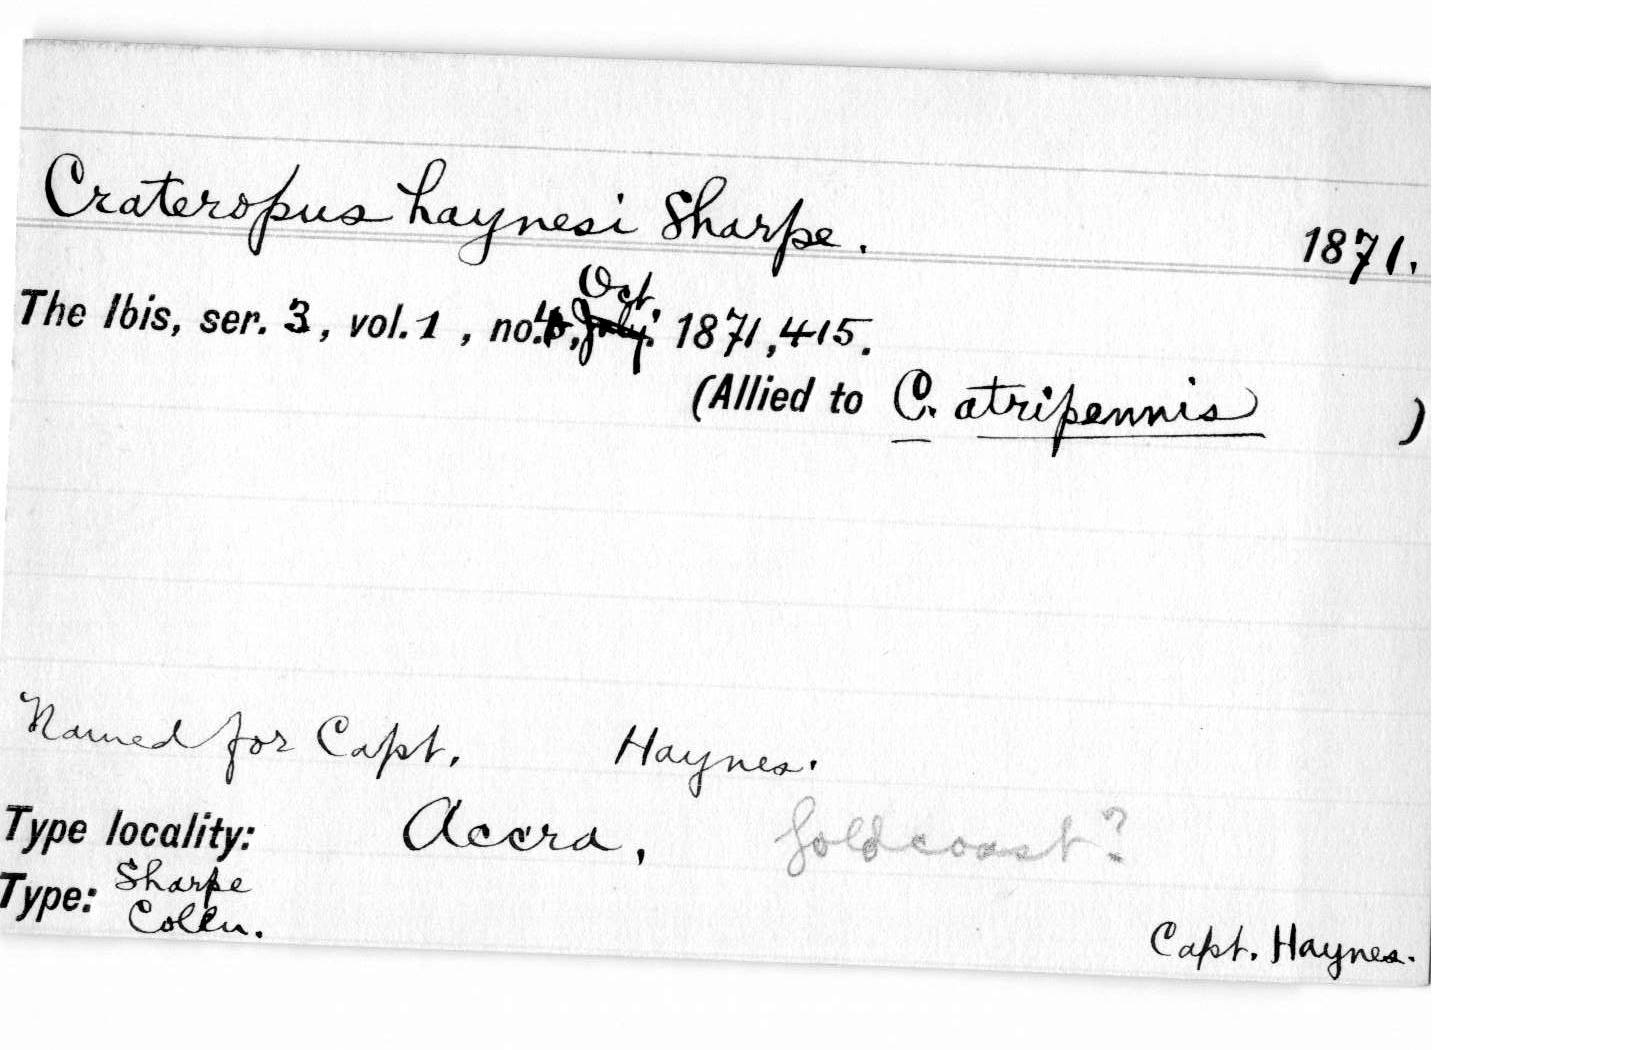 Crateropus haynesi Sharpe. 1871.
Oct.
The Ibis, ser. 3, vol. 1, no. 4, July. 1871, 415.
(Allied to C. atripennis )
Named for Capt. Haynes.
Type locality: Accra, Goldcoast?
Type: Sharpe
Colln.
Capt. Haynes.